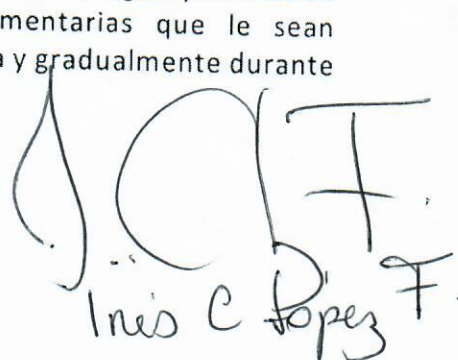 mentarias que le sean
y gradualmente durante
Inés C López F.